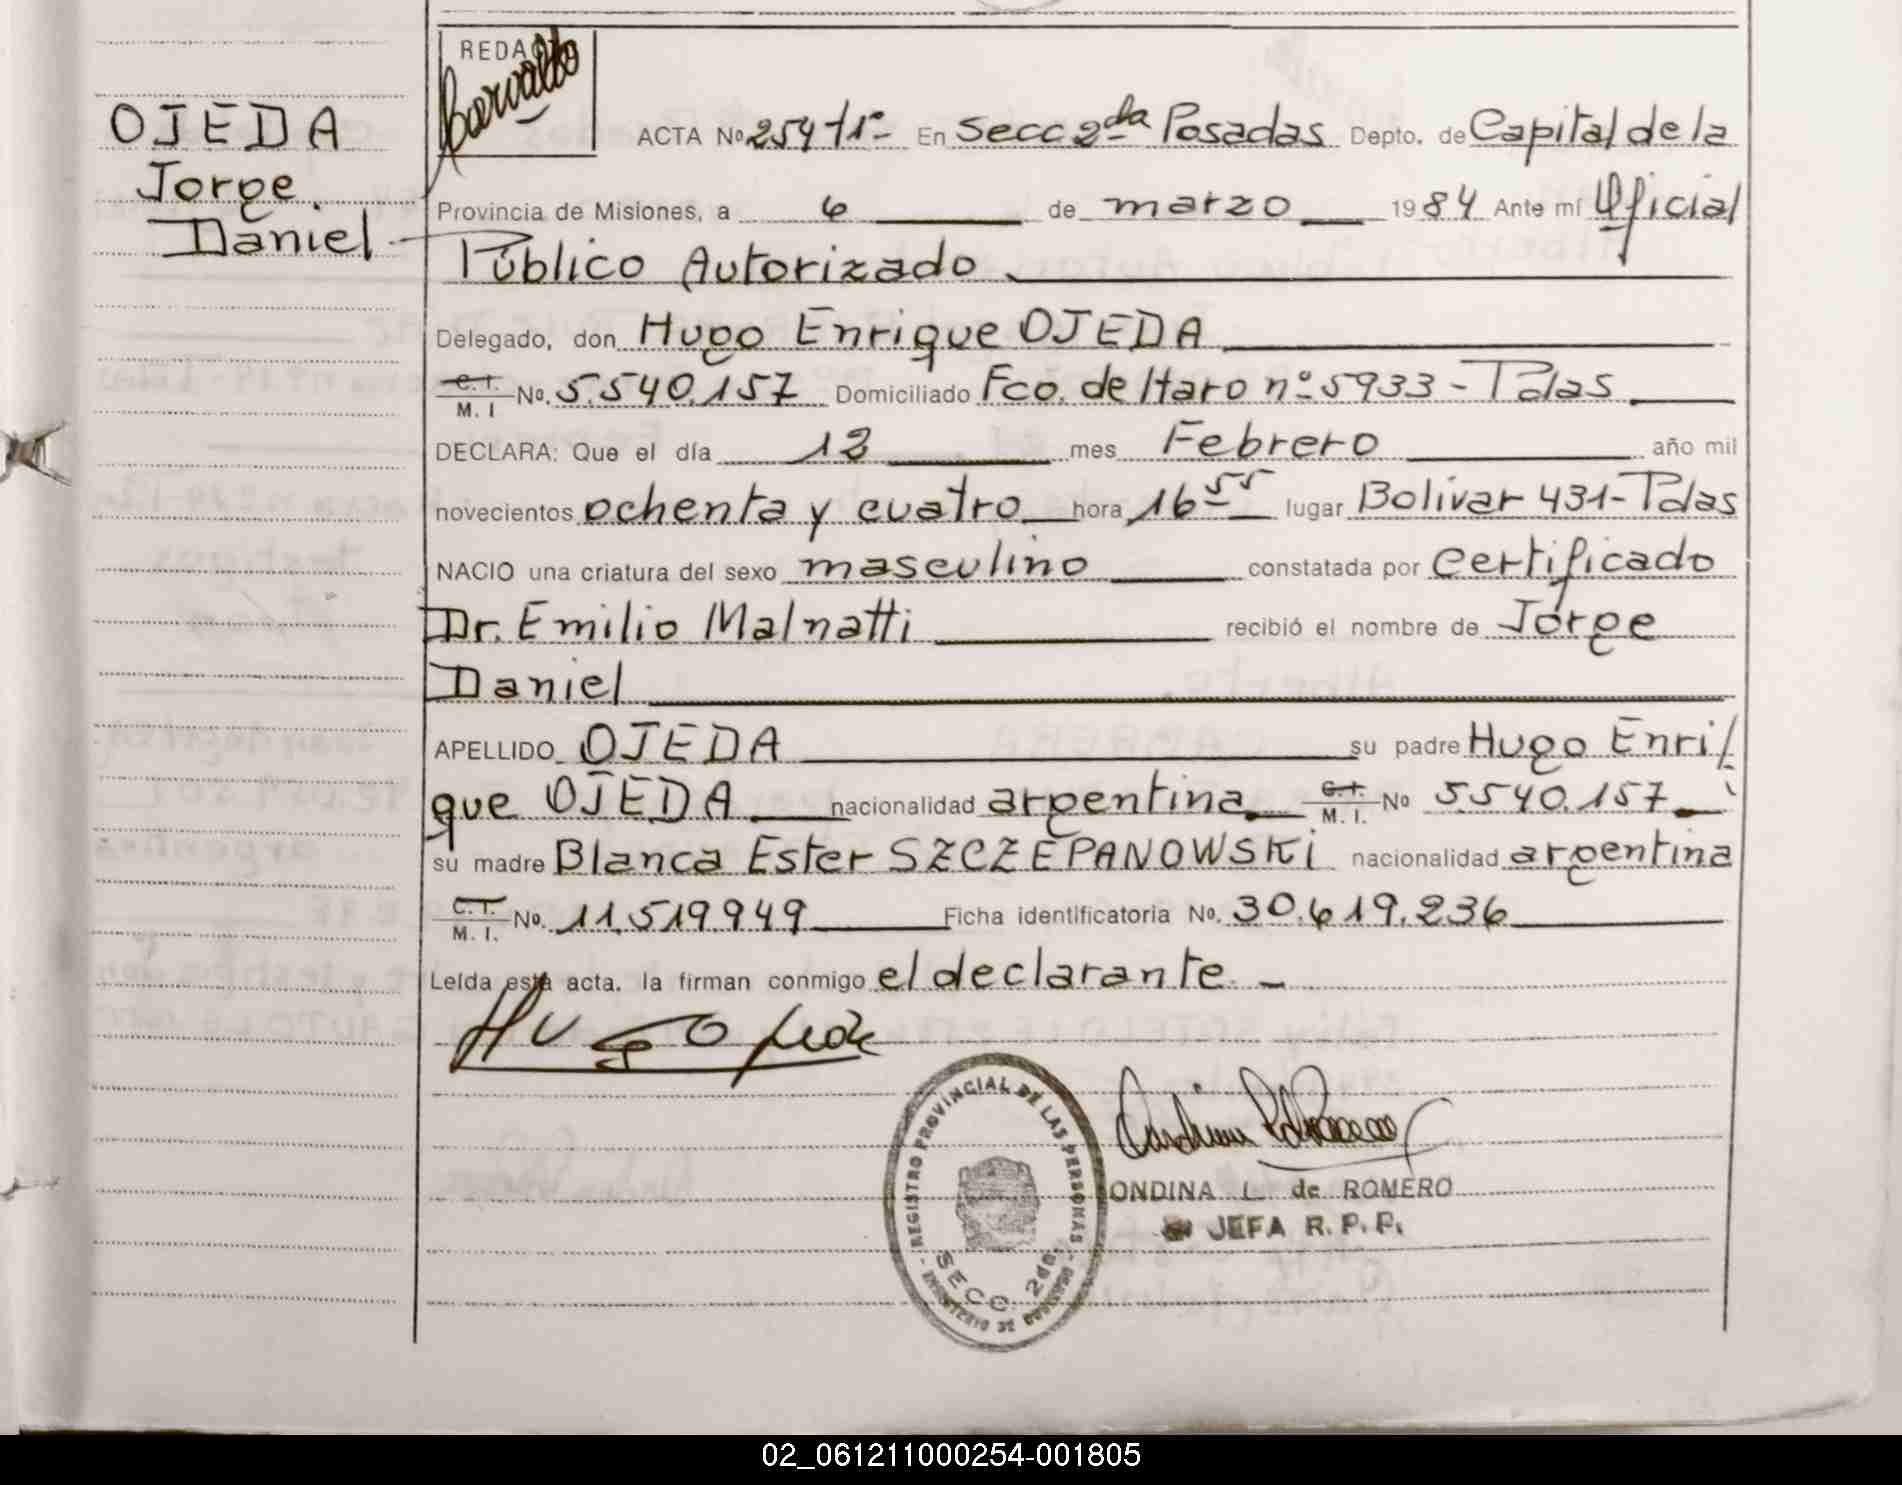 REDAC
OJEDA
Jorge
Daniel
ACTA Nº 254 T1º- En Secc 2da Posadas Depto. de Capital de la
Provincia de Misiones, a 6 de marzo 1984 Ante mí Oficial
Público Autorizado
Delegado, don Hugo Enrique OJEDA
C.I. M. I No. 5.540.157 Domiciliado Fco. de Haro nº 5933 - Pdas
DECLARA: Que el día 13 mes Febrero año mil
novecientos ochenta y cuatro hora 16 55 lugar Bolivar 431 - Pdas
NACIO una criatura del sexo masculino constatada por certificado
Dr. Emilio Malnatti recibió el nombre de Jorge
Daniel
APELLIDO OJEDA su padre Hugo Enri/
que OJEDA nacionalidad argentina C.I. M. I. Nº 5.540.157
su madre Blanca Ester SZCZEPANOWSKI nacionalidad argentina
C.I. M. I. No. 11.519.949 Ficha identificatoria No. 30.619.236
Leída esta acta, la firman conmigo el declarante. -
Hugo Ojeda
REGISTRO PROVINCIAL DE LAS PERSONAS
SECC. 2da.
- MINISTERIO DE GOBIERNO -
ONDINA L. de ROMERO
JEFA R. P. P.
02_061211000254-001805